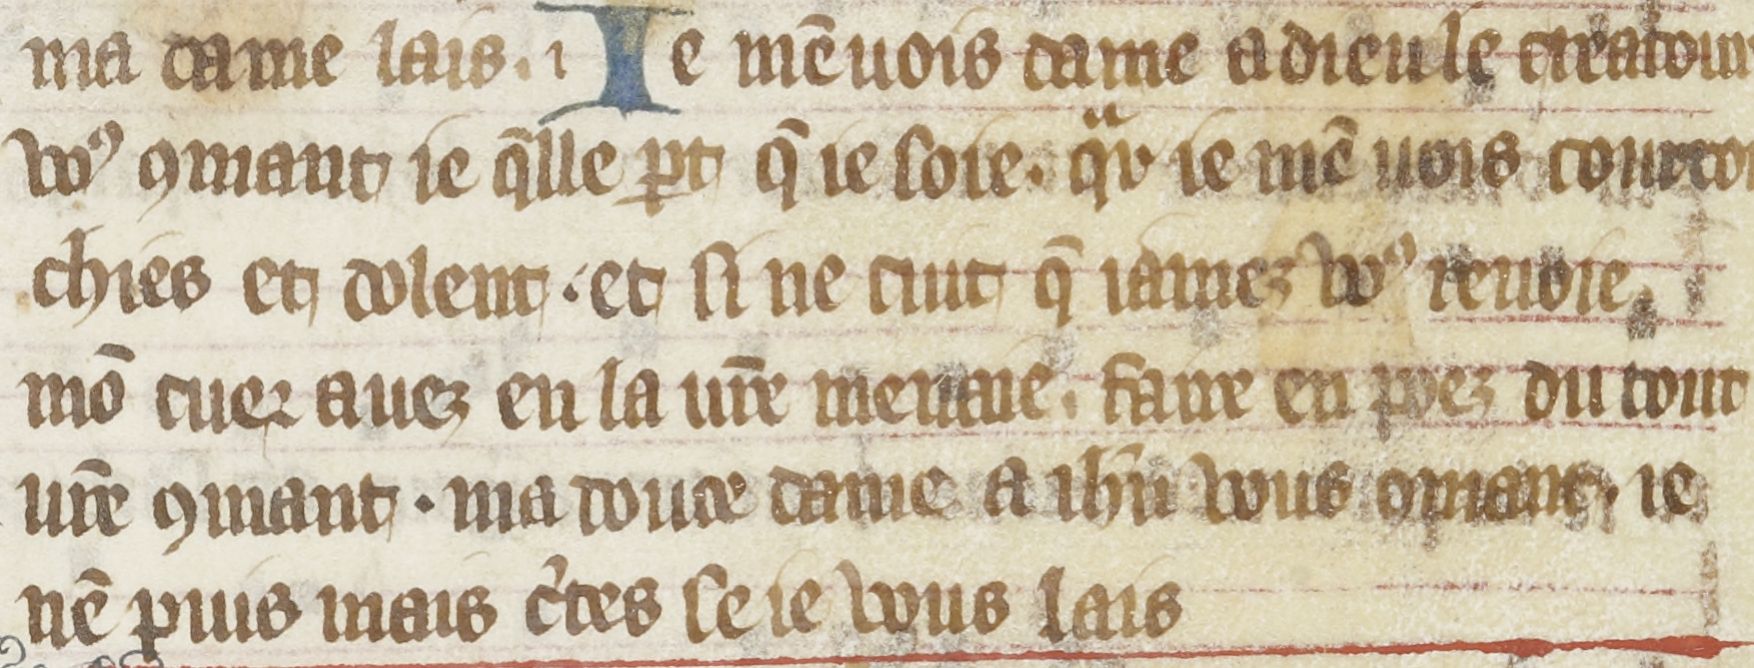 ma dame lais. i Je mēuois dame a dieu le creatour
voꝰ ꝯmant ie q̄lle ꝑt q̄ ie soie. qͣr ie mē uois courcou
chies et dolent. et si ne cuit q̄ iamez voꝰ reuoie.
mō cuer auez en la ur̄e menaie. faire en poez du tout
ur̄e ꝯmant. ma douce dame a ihū vous ꝯmant. ie
nē puis mais c̾tes se ie vous lais